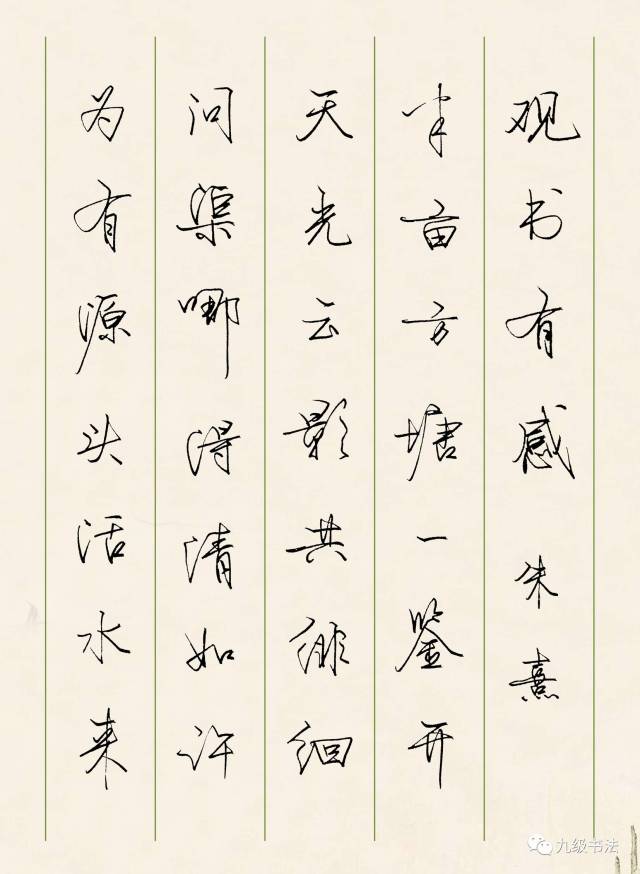 观书有感 朱熹
半亩方塘一鉴开
天光云影共徘徊
问渠哪得清如许
为有源头活水来
九级书法